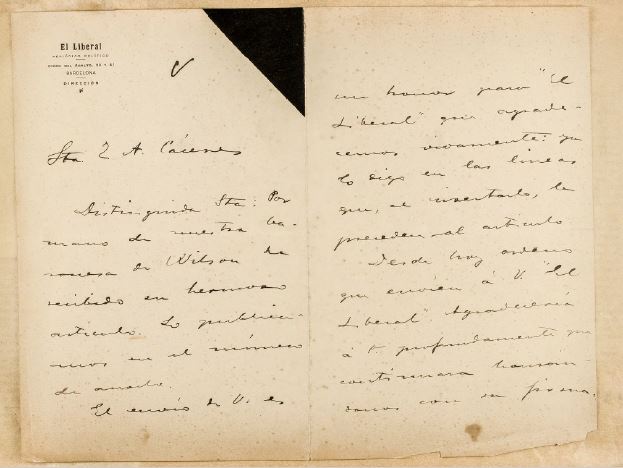 El Liberal
PERIÓDICO POLÍTICO
BARCELONA
DIRECCIÓN
Sta. Z A. Cáceres
Distinguida Sta: Por
mano de nuestra ba-
ronesa de Wilson he
recibido su hermoso
artículo. Lo publica-
mos en el número
de
El envío de V. es
un honor para "El
Liberal" que agrade-
cemos vivamente: ya
lo digo en las líneas
que, al insertarlo, le
preceden al artículo
Desde hoy ordeno
que envíen á V. "El
Liberal". Agradecería
á V. profundamente que
continuara honrán-
donos con su firma.